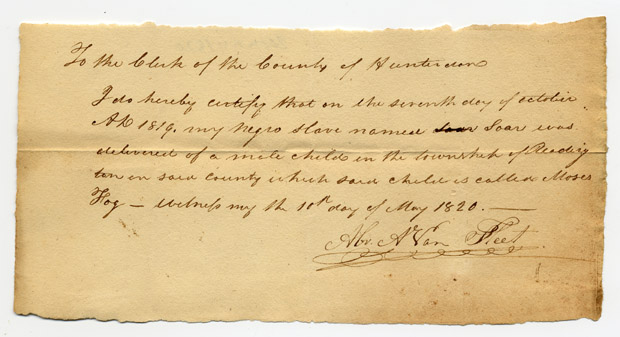 To the Clerk of the County of Hunterdon
I do hereby certify that on the seventh day of october
AD 1819. my Negro slave named Soar was
delivered of a male child in the township of Reading
ton in said County which said child is called Moses
Hog — witness my the 10th day of May 1820. —
Abr. A. Van Fleet